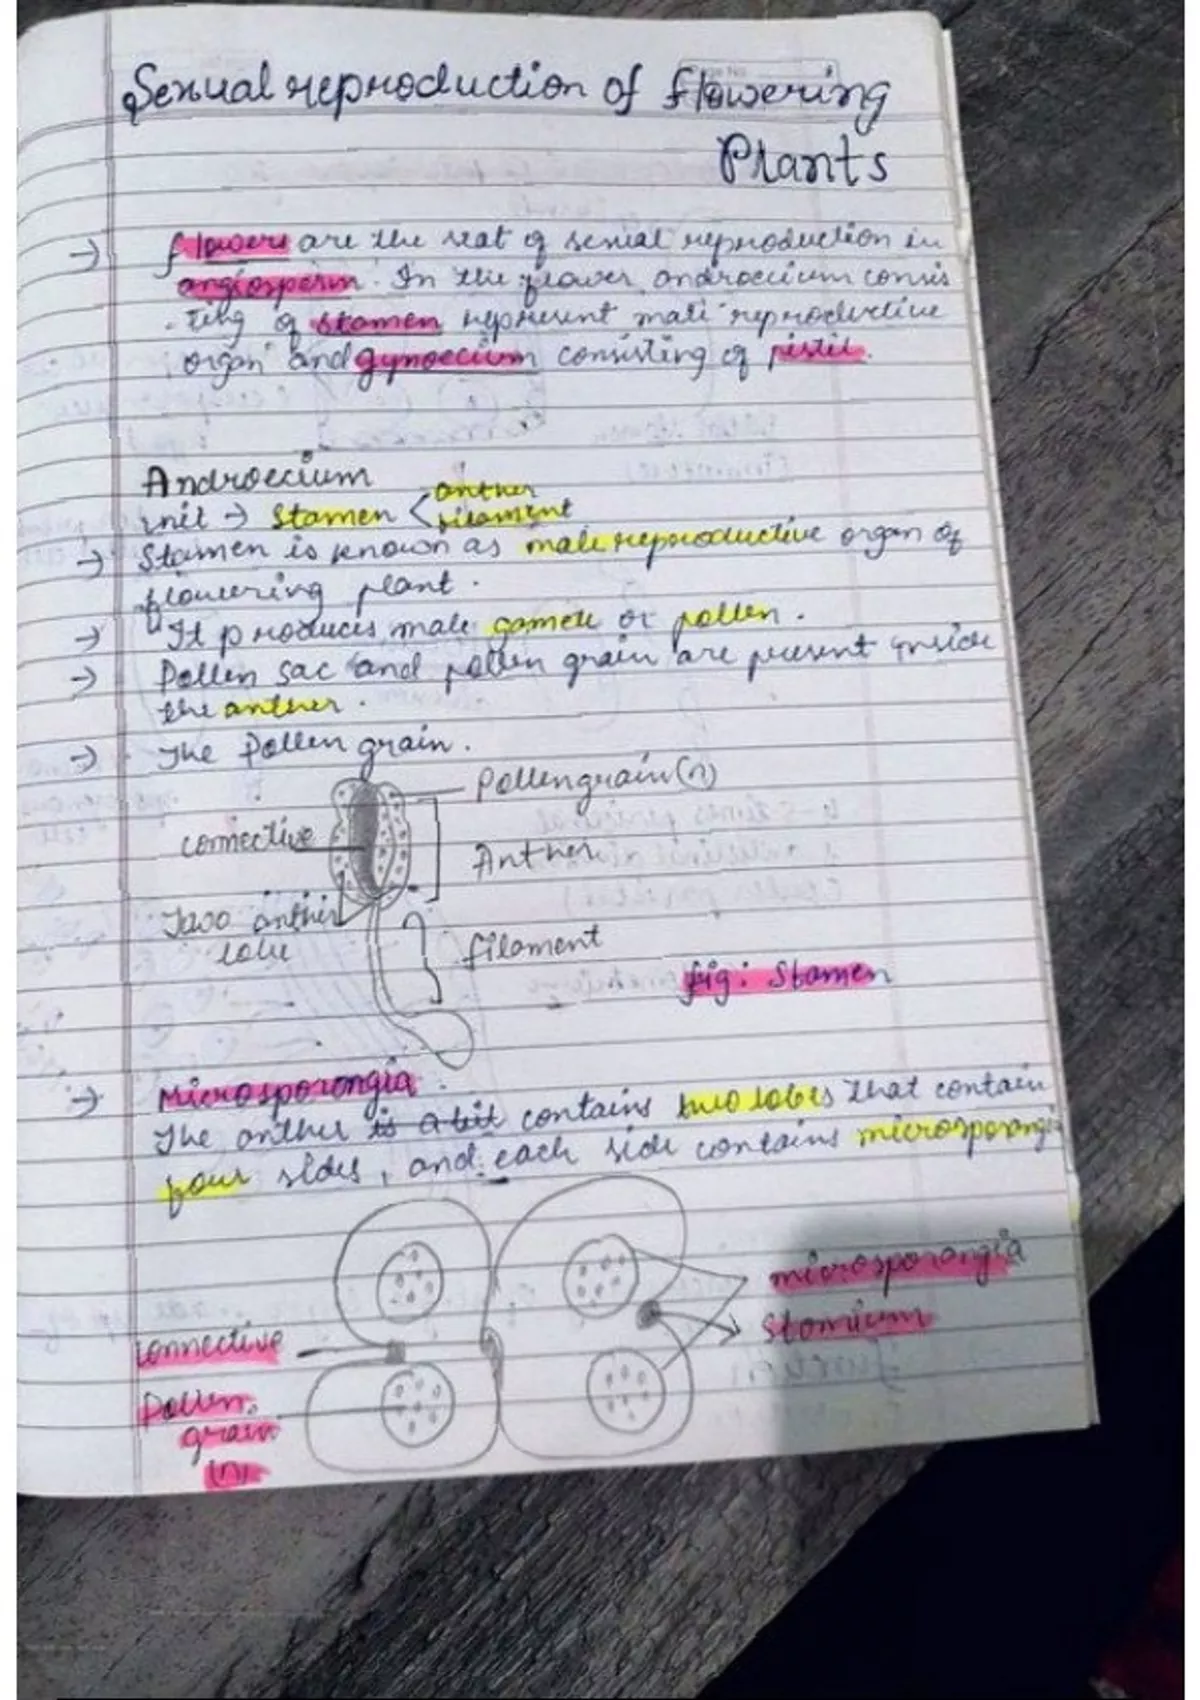 Sexual reproduction of flowering
Plants
→ flowers are the seat of sexual reproduction in
angiosperm. In the flower androecium consis
-ting of stamen represent male reproductive
organ and gynoecium consisting of pistil.
Androecium
unit → Stamen < anther
filament
→ Stamen is known as male reproductive organ of
flowering plant.
→ It produces male gamete or pollen.
→ Pollen sac and pollen grain are present inside
the anther.
→ The Pollen grain.
Pollengrain (n)
connective
Anther
Two anther
lobe
filament
fig: Stamen
→ Microsporangia.
The anther is a bit contains two lobes that contain
four sides, and each side contains microsporangia
microsporangia
Stomium
connective
Pollen
grain
(n)